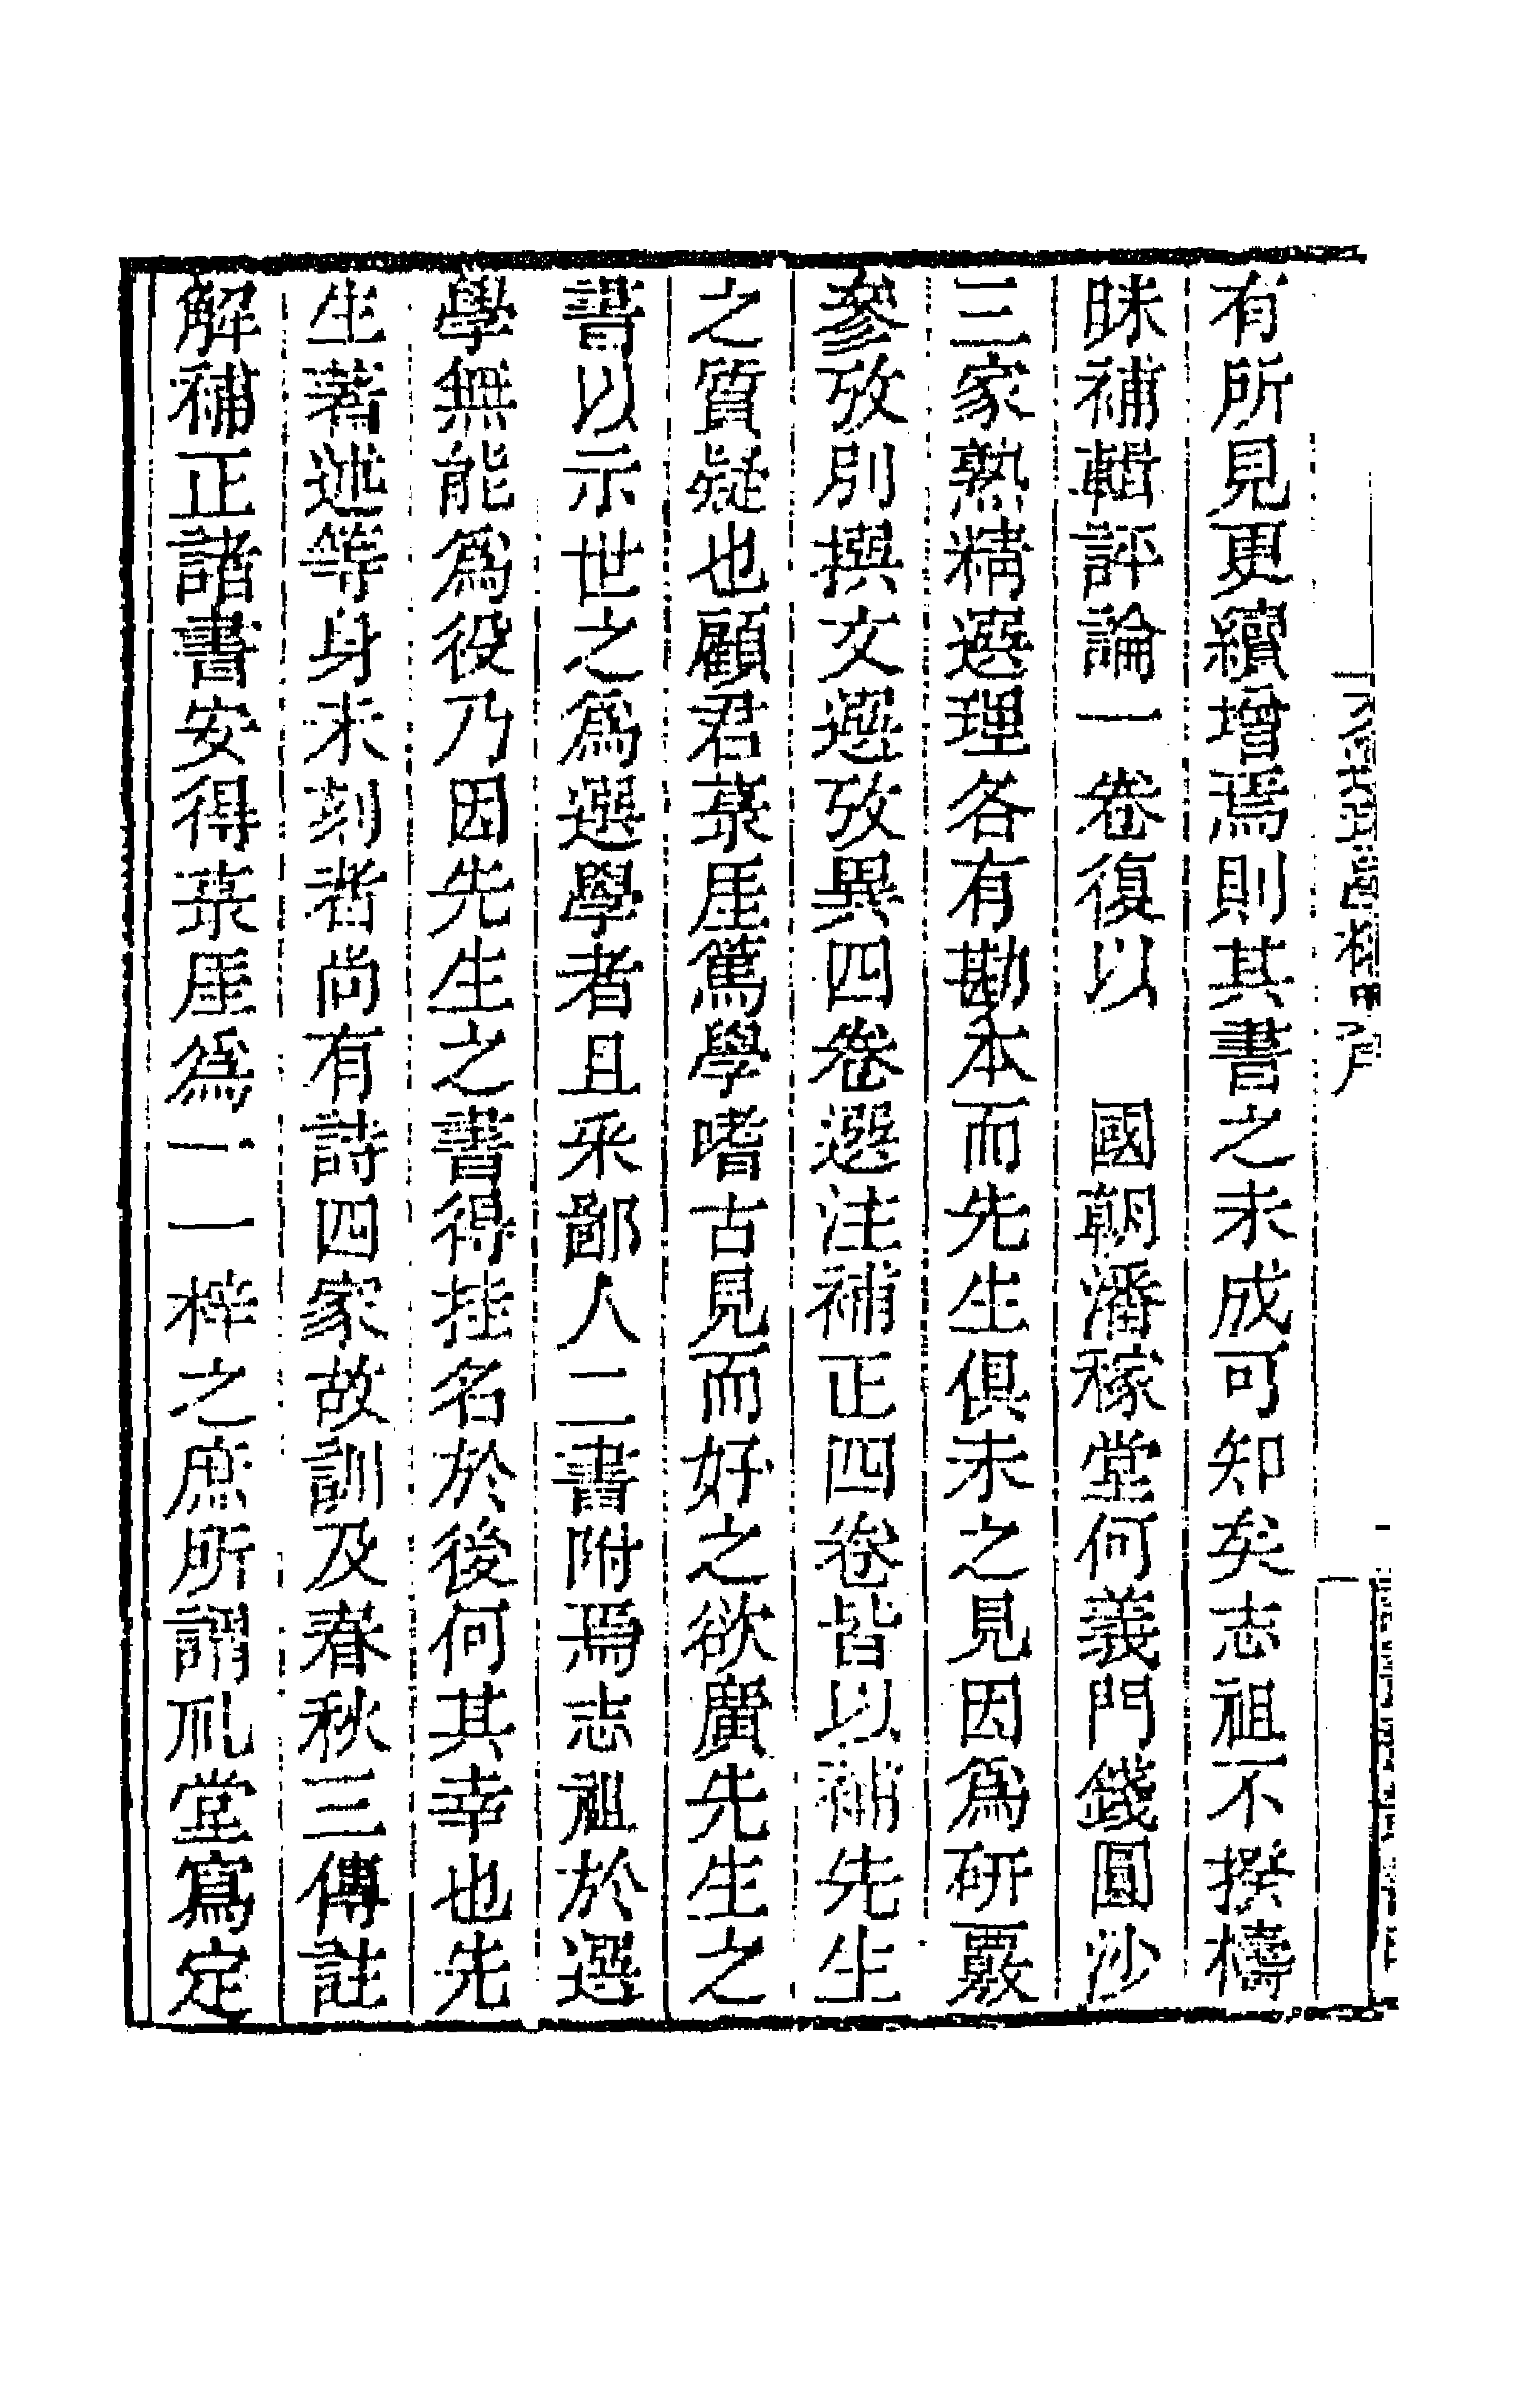 有所見更續增焉則其書之未成可知矣志祖不揆檮
昧補輯評論一卷復以　國朝潘稼堂何義門錢圓沙
三家熟精選理各有勘本而先生俱未之見因爲研覈
參攷別撰文選攷異四卷選注補正四卷皆以補先生
之質疑也顧君菉厓篤學嗜古見而好之欲廣先生之
書以示世之爲選學者且采鄙人二書附焉志祖於選
學無能爲役乃因先生之書得挂名於後何其幸也先
生著述等身未刻者尚有詩四家故訓及春秋三傳註
解補正諸書安得菉厓爲一一梓之庶所謂礼堂寫定